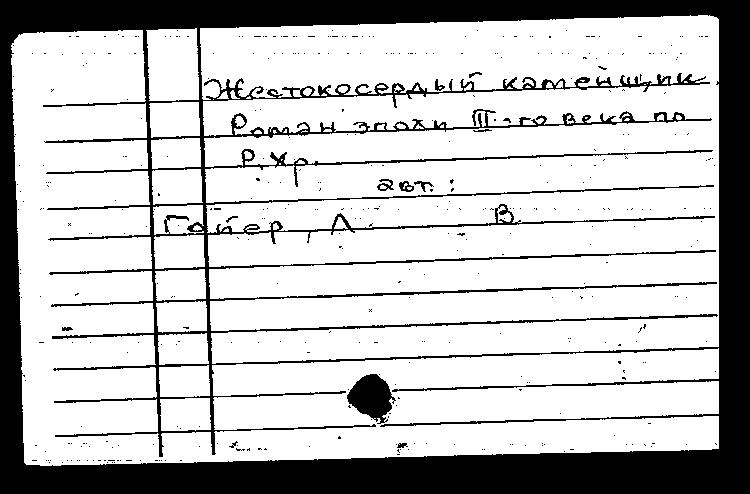 Жестокосердый каменщик.
Роман эпохи III-го века по
Р. Хр.
авт.:
Гейер, А. В